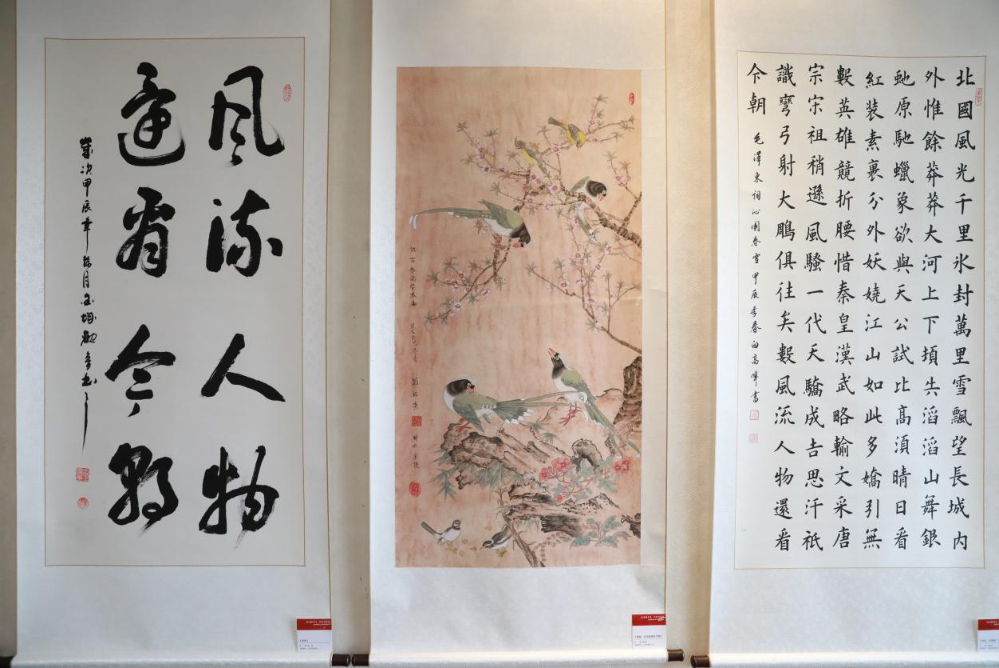 風流人物
還看今朝
歲次甲辰年
北國風光千里氷封萬里雪飄望長城内
外惟餘莽莽大河上下頓失滔滔山舞銀
虵原馳蠟象欲與天公試比高須晴日看
紅装素裹分外妖嬈江山如此多嬌引無
數英雄競折腰惜秦皇漢武略輸文采唐
宗宋祖稍遜風騷一代天驕成吉思汗祇
識彎弓射大鵰俱往矣數風流人物還看
今朝
毛澤東詞沁園春雪甲辰季春白高峰書